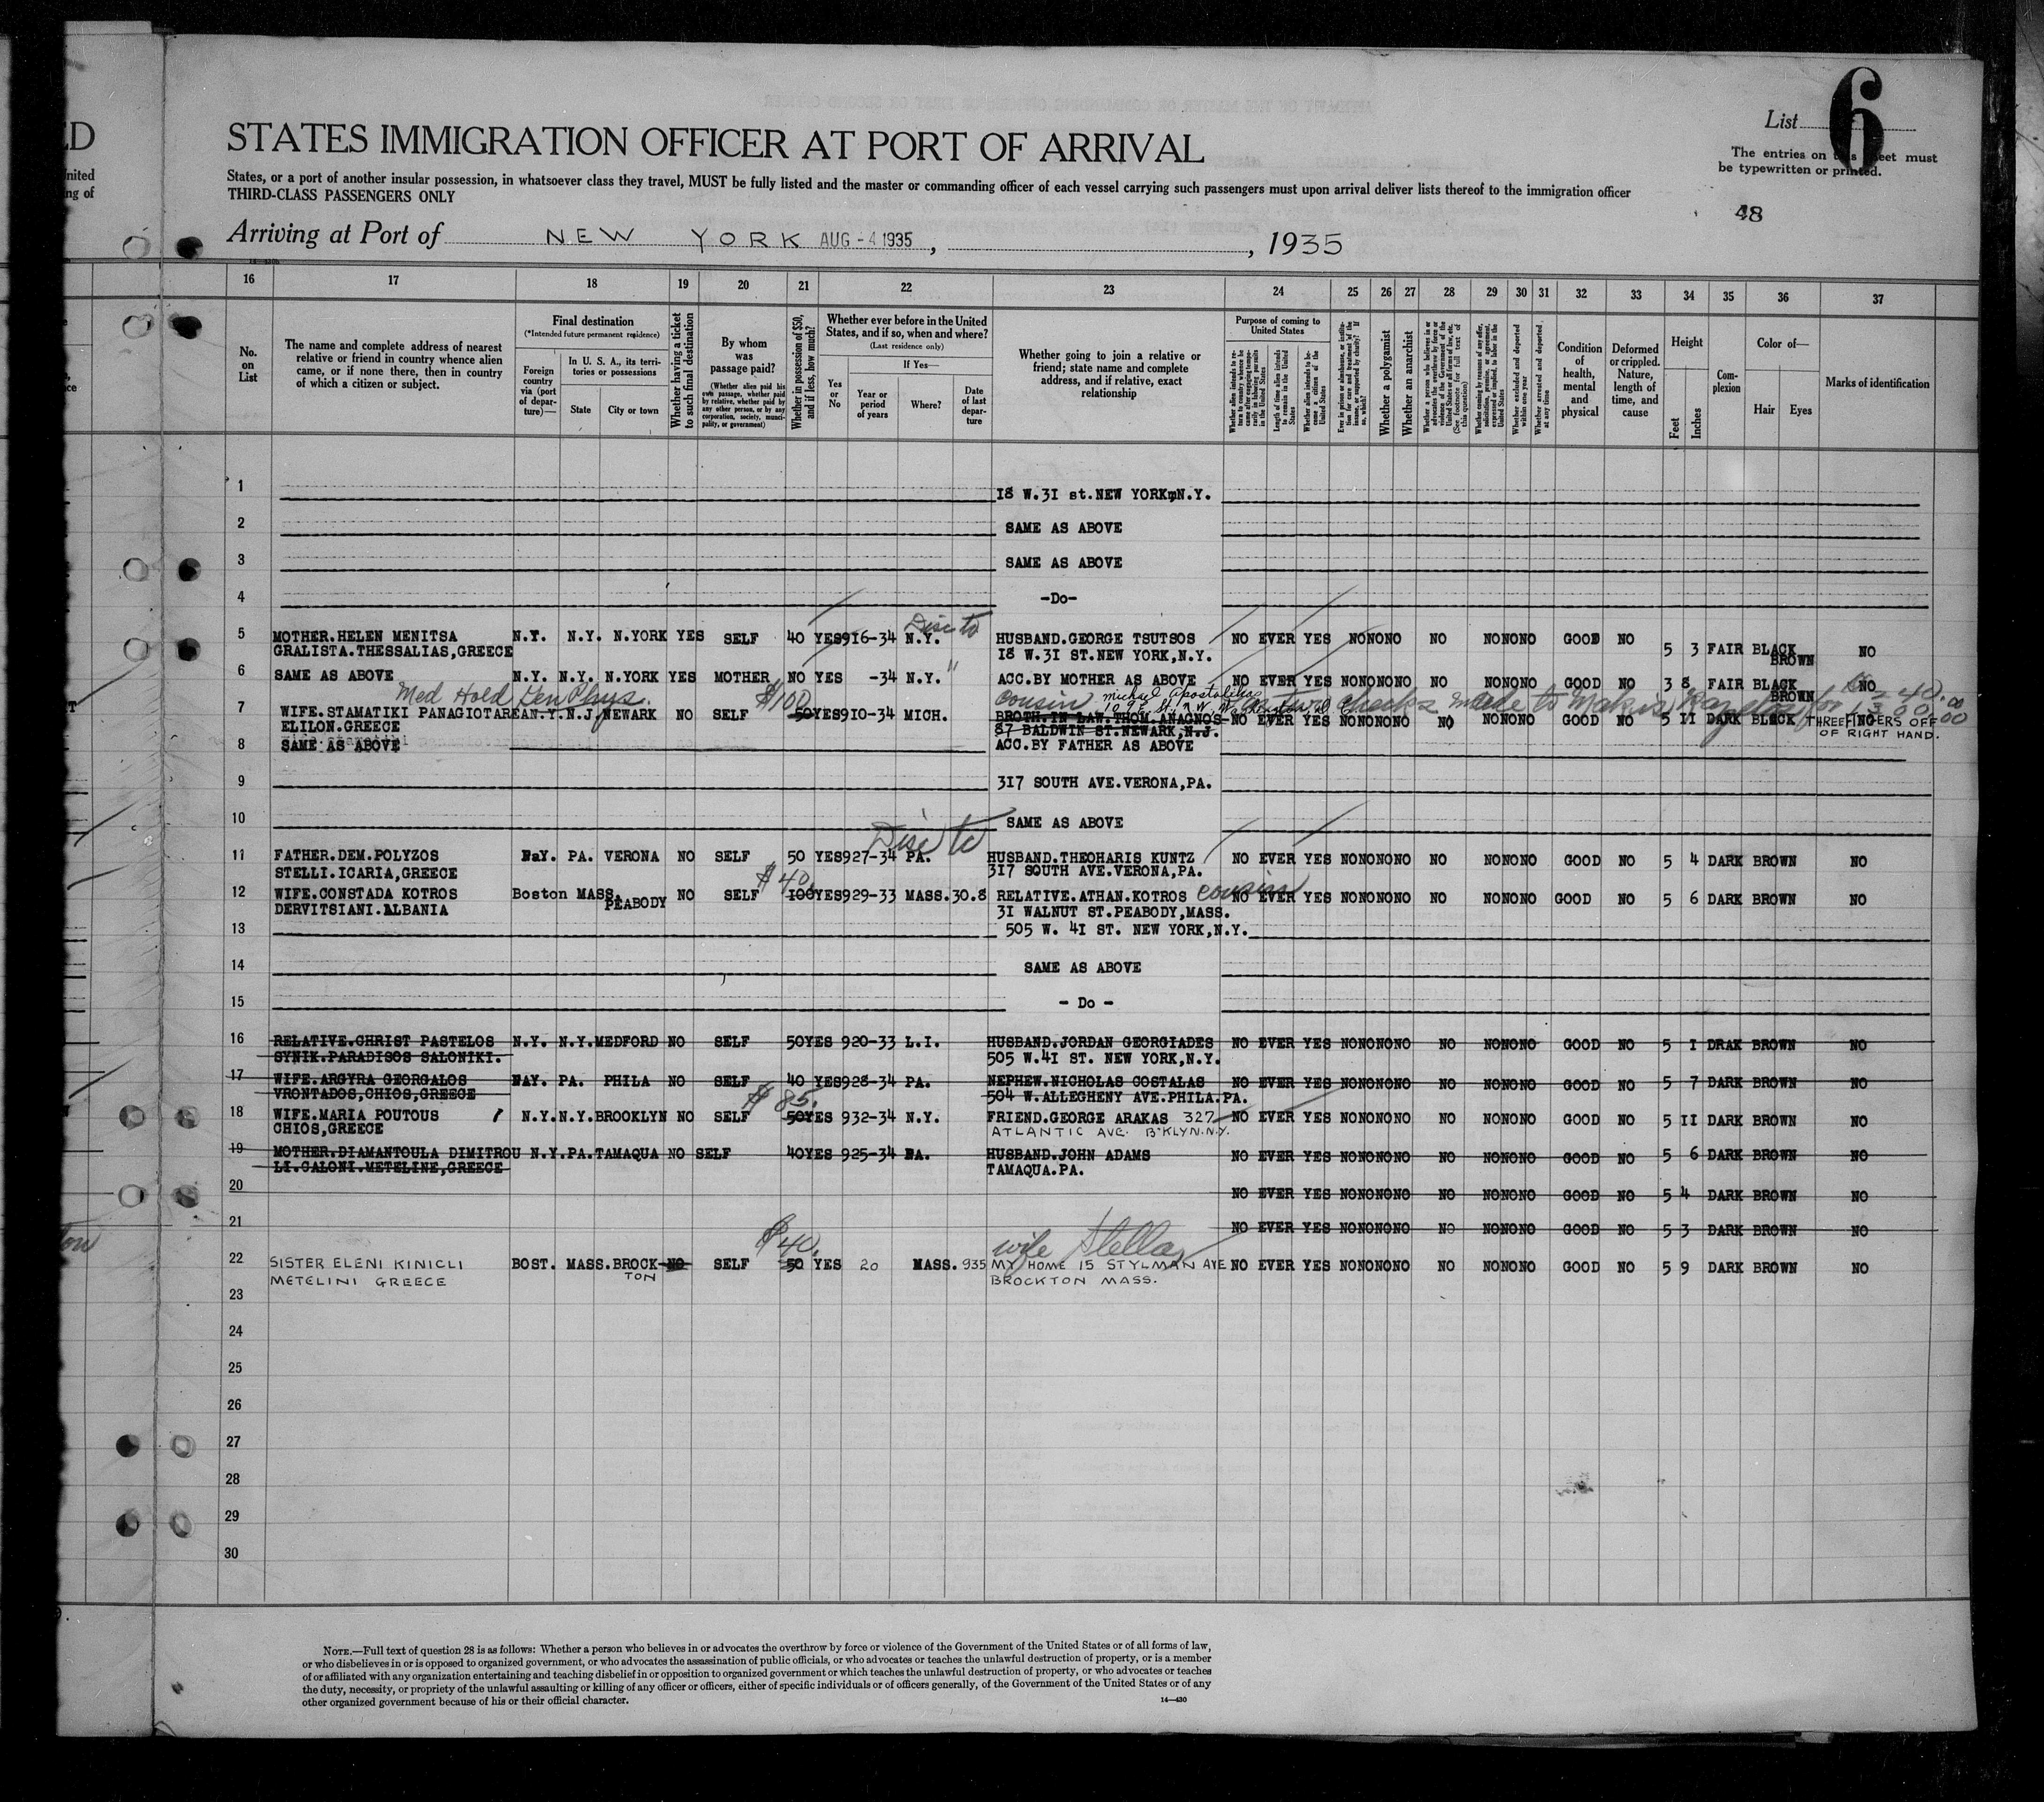 ED
nited
ng of
List 6
The entries on this sheet must
be typewritten or printed.
STATES IMMIGRATION OFFICER AT PORT OF ARRIVAL
States, or a port of another insular possession, in whatsoever class they travel, MUST be fully listed and the master or commanding officer of each vessel carrying such passengers must upon arrival deliver lists thereof to the immigration officer
THIRD-CLASS PASSENGERS ONLY
48
Arriving at Port of NEW YORK AUG -4 1935, , 1935
16 17 18 19 20 21 22 23 24 25 26 27 28 29 30 31 32 33 34 35 36 37
No. on List
The name and complete address of nearest relative or friend in country whence alien came, or if none there, then in country of which a citizen or subject.
Final destination
(*Intended future permanent residence)
Foreign country via (port of departure)—
In U. S. A., its territories or possessions
State
City or town
Whether having a ticket to such final destination
By whom was passage paid?
(Whether alien paid his own passage, whether paid by relative, whether paid by any other person, or by any corporation, society, municipality, or government)
Whether in possession of $50, and if less, how much?
Whether ever before in the United States, and if so, when and where?
(Last residence only)
Yes or No
If Yes—
Year or period of years
Where?
Date of last departure
Whether going to join a relative or friend; state name and complete address, and if relative, exact relationship
Purpose of coming to United States
Length of time alien intends to remain in the United States
Whether alien intends to become a citizen of the United States
Whether a polygamist
Whether an anarchist
Whether excluded and deported within one year
Whether arrested and deported at any time
Condition of health, mental and physical
Deformed or crippled. Nature, length of time, and cause
Height
Feet
Inches
Complexion
Color of—
Hair
Eyes
Marks of identification
1 18 W.31 st.NEW YORK,N.Y.
2 SAME AS ABOVE
3 SAME AS ABOVE
4 -Do-
Disc to
5 MOTHER.HELEN MENITSA N.Y. N.Y. N.YORK YES SELF 40 YES 916-34 N.Y. HUSBAND.GEORGE TSUTSOS NO EVER YES NONONO NO NONONO GOOD NO 5 3 FAIR BLACK BROWN NO
GRALISTA.THESSALIAS,GREECE 18 W.31 ST.NEW YORK,N.Y.
6 SAME AS ABOVE N.Y. N.Y. N.YORK YES MOTHER NO YES -34 N.Y. " ACC.BY MOTHER AS ABOVE NO EVER YES NONONONO NO NONONO GOOD NO 3 8 FAIR BLACK BROWN NO
Med Hold Gen Phys. $100 cousin michael Apostolikas two checks made to Makis
7 WIFE.STAMATIKI PANAGIOTAREA N.Y. N.J. NEWARK NO SELF 50 YES 910-34 MICH. BROTH.IN LAW.THOM.ANAGNOS NO EVER YES NONONONO NO NONONO GOOD NO 5 11 DARK BLACK NO
ELILON.GREECE 87 BALDWIN ST.NEWARK,N.J. THREE FINGERS OFF
OF RIGHT HAND.
8 SAME AS ABOVE ACC.BY FATHER AS ABOVE
9 317 SOUTH AVE.VERONA,PA.
10 SAME AS ABOVE
Disc to
11 FATHER.DEM.POLYZOS N.Y. PA. VERONA NO SELF 50 YES 927-34 PA. HUSBAND.THEOHARIS KUNTZ NO EVER YES NONONONO NO NONONO GOOD NO 5 4 DARK BROWN NO
STELLI.ICARIA,GREECE 317 SOUTH AVE.VERONA,PA.
$40. cousin
12 WIFE.CONSTADA KOTROS Boston MASS. PEABODY NO SELF 100 YES 929-33 MASS.30.8 RELATIVE.ATHAN.KOTROS NO EVER YES NONONONO NO NONONO GOOD NO 5 6 DARK BROWN NO
DERVITSIANI.ALBANIA 31 WALNUT ST.PEABODY,MASS.
13 505 W. 41 ST. NEW YORK,N.Y.
14 SAME AS ABOVE
15 - Do -
16 RELATIVE.CHRIST PASTELOS N.Y. N.Y.MEDFORD NO SELF 50 YES 920-33 L.I. HUSBAND.JORDAN GEORGIADES NO EVER YES NONONONO NO NONONO GOOD NO 5 1 DRAK BROWN NO
SYNIK.PARADISOS SALONIKI. 505 W.41 ST. NEW YORK,N.Y.
17 WIFE.ARGYRA GEORGALOS N.Y. PA. PHILA NO SELF 40 YES 928-34 PA. NEPHEW.NICHOLAS COSTALAS NO EVER YES NONONONO NO NONONO GOOD NO 5 7 DARK BROWN NO
VRONTADOS,CHIOS,GREECE 504 W.ALLEGHENY AVE.PHILA.PA.
$85.
18 WIFE.MARIA POUTOUS N.Y. N.Y. BROOKLYN NO SELF 50 YES 932-34 N.Y. FRIEND.GEORGE ARAKAS 327 NO EVER YES NONONONO NO NONONO GOOD NO 5 11 DARK BROWN NO
CHIOS,GREECE ATLANTIC AVE. B'KLYN.N.Y.
19 MOTHER.DIAMANTOULA DIMITROU N.Y. PA. TAMAQUA NO SELF 40 YES 925-34 PA. HUSBAND.JOHN ADAMS NO EVER YES NONONONO NO NONONO GOOD NO 5 6 DARK BROWN NO
LI.CALONI.METELINE,GREECE TAMAQUA.PA.
20 NO EVER YES NONONONO NO NONONO GOOD NO 5 4 DARK BROWN NO
21 NO EVER YES NONONONO NO NONONO GOOD NO 5 3 DARK BROWN NO
$40. wife Stella
22 SISTER ELENI KINICLI BOST. MASS. BROCKTON NO SELF 50 YES 20 MASS. 935 MY HOME 15 STYLMAN AVE NO EVER YES NONONONO NO NONONO GOOD NO 5 9 DARK BROWN NO
METELINI GREECE BROCKTON MASS.
23
24
25
26
27
28
29
30
NOTE.—Full text of question 28 is as follows: Whether a person who believes in or advocates the overthrow by force or violence of the Government of the United States or of all forms of law,
or who disbelieves in or is opposed to organized government, or who advocates the assassination of public officials, or who advocates or teaches the unlawful destruction of property, or is a member
of or affiliated with any organization entertaining and teaching disbelief in or opposition to organized government or which teaches the unlawful destruction of property, or who advocates or teaches
the duty, necessity, or propriety of the unlawful assaulting or killing of any officer or officers, either of specific individuals or of officers generally, of the Government of the United States or of any
other organized government because of his or their official character.
14—430